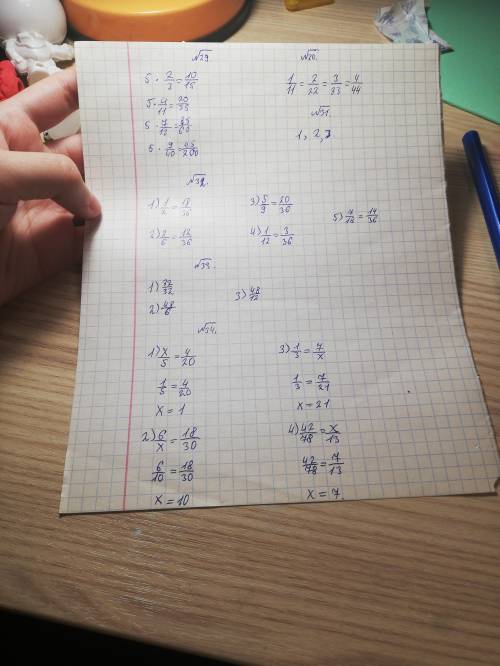 №29
5 · 2/3 = 10/15
5 · 4/11 = 20/55
5 · 7/12 = 35/60
5 · 9/40 = 45/200
№30.
1/11 = 2/22 = 3/33 = 4/44
№31.
1, 2, 3
№32.
1) 1/2 = 18/36
2) 2/6 = 12/36
3) 5/9 = 20/36
4) 1/12 = 3/36
5) 7/18 = 14/36
№33.
1) 32/32
2) 48/6
3) 48/12
№34.
1) x/5 = 4/20
1/5 = 4/20
x = 1
2) 6/x = 18/30
6/10 = 18/30
x = 10
3) 1/3 = 7/x
1/3 = 7/21
x = 21
4) 42/78 = x/13
42/78 = 7/13
x = 7